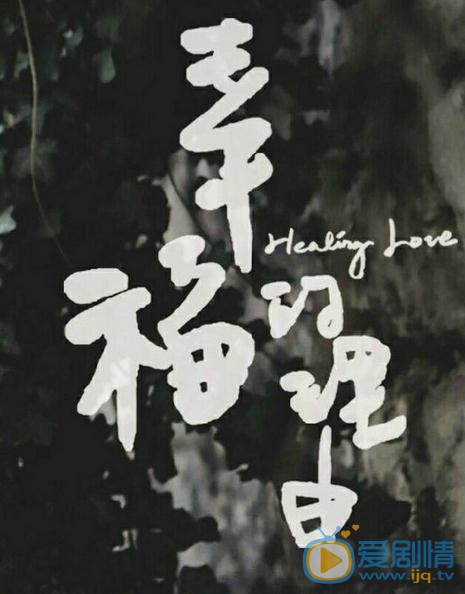 幸福的理由
Healing Love
爱剧情
www.ijq.tv